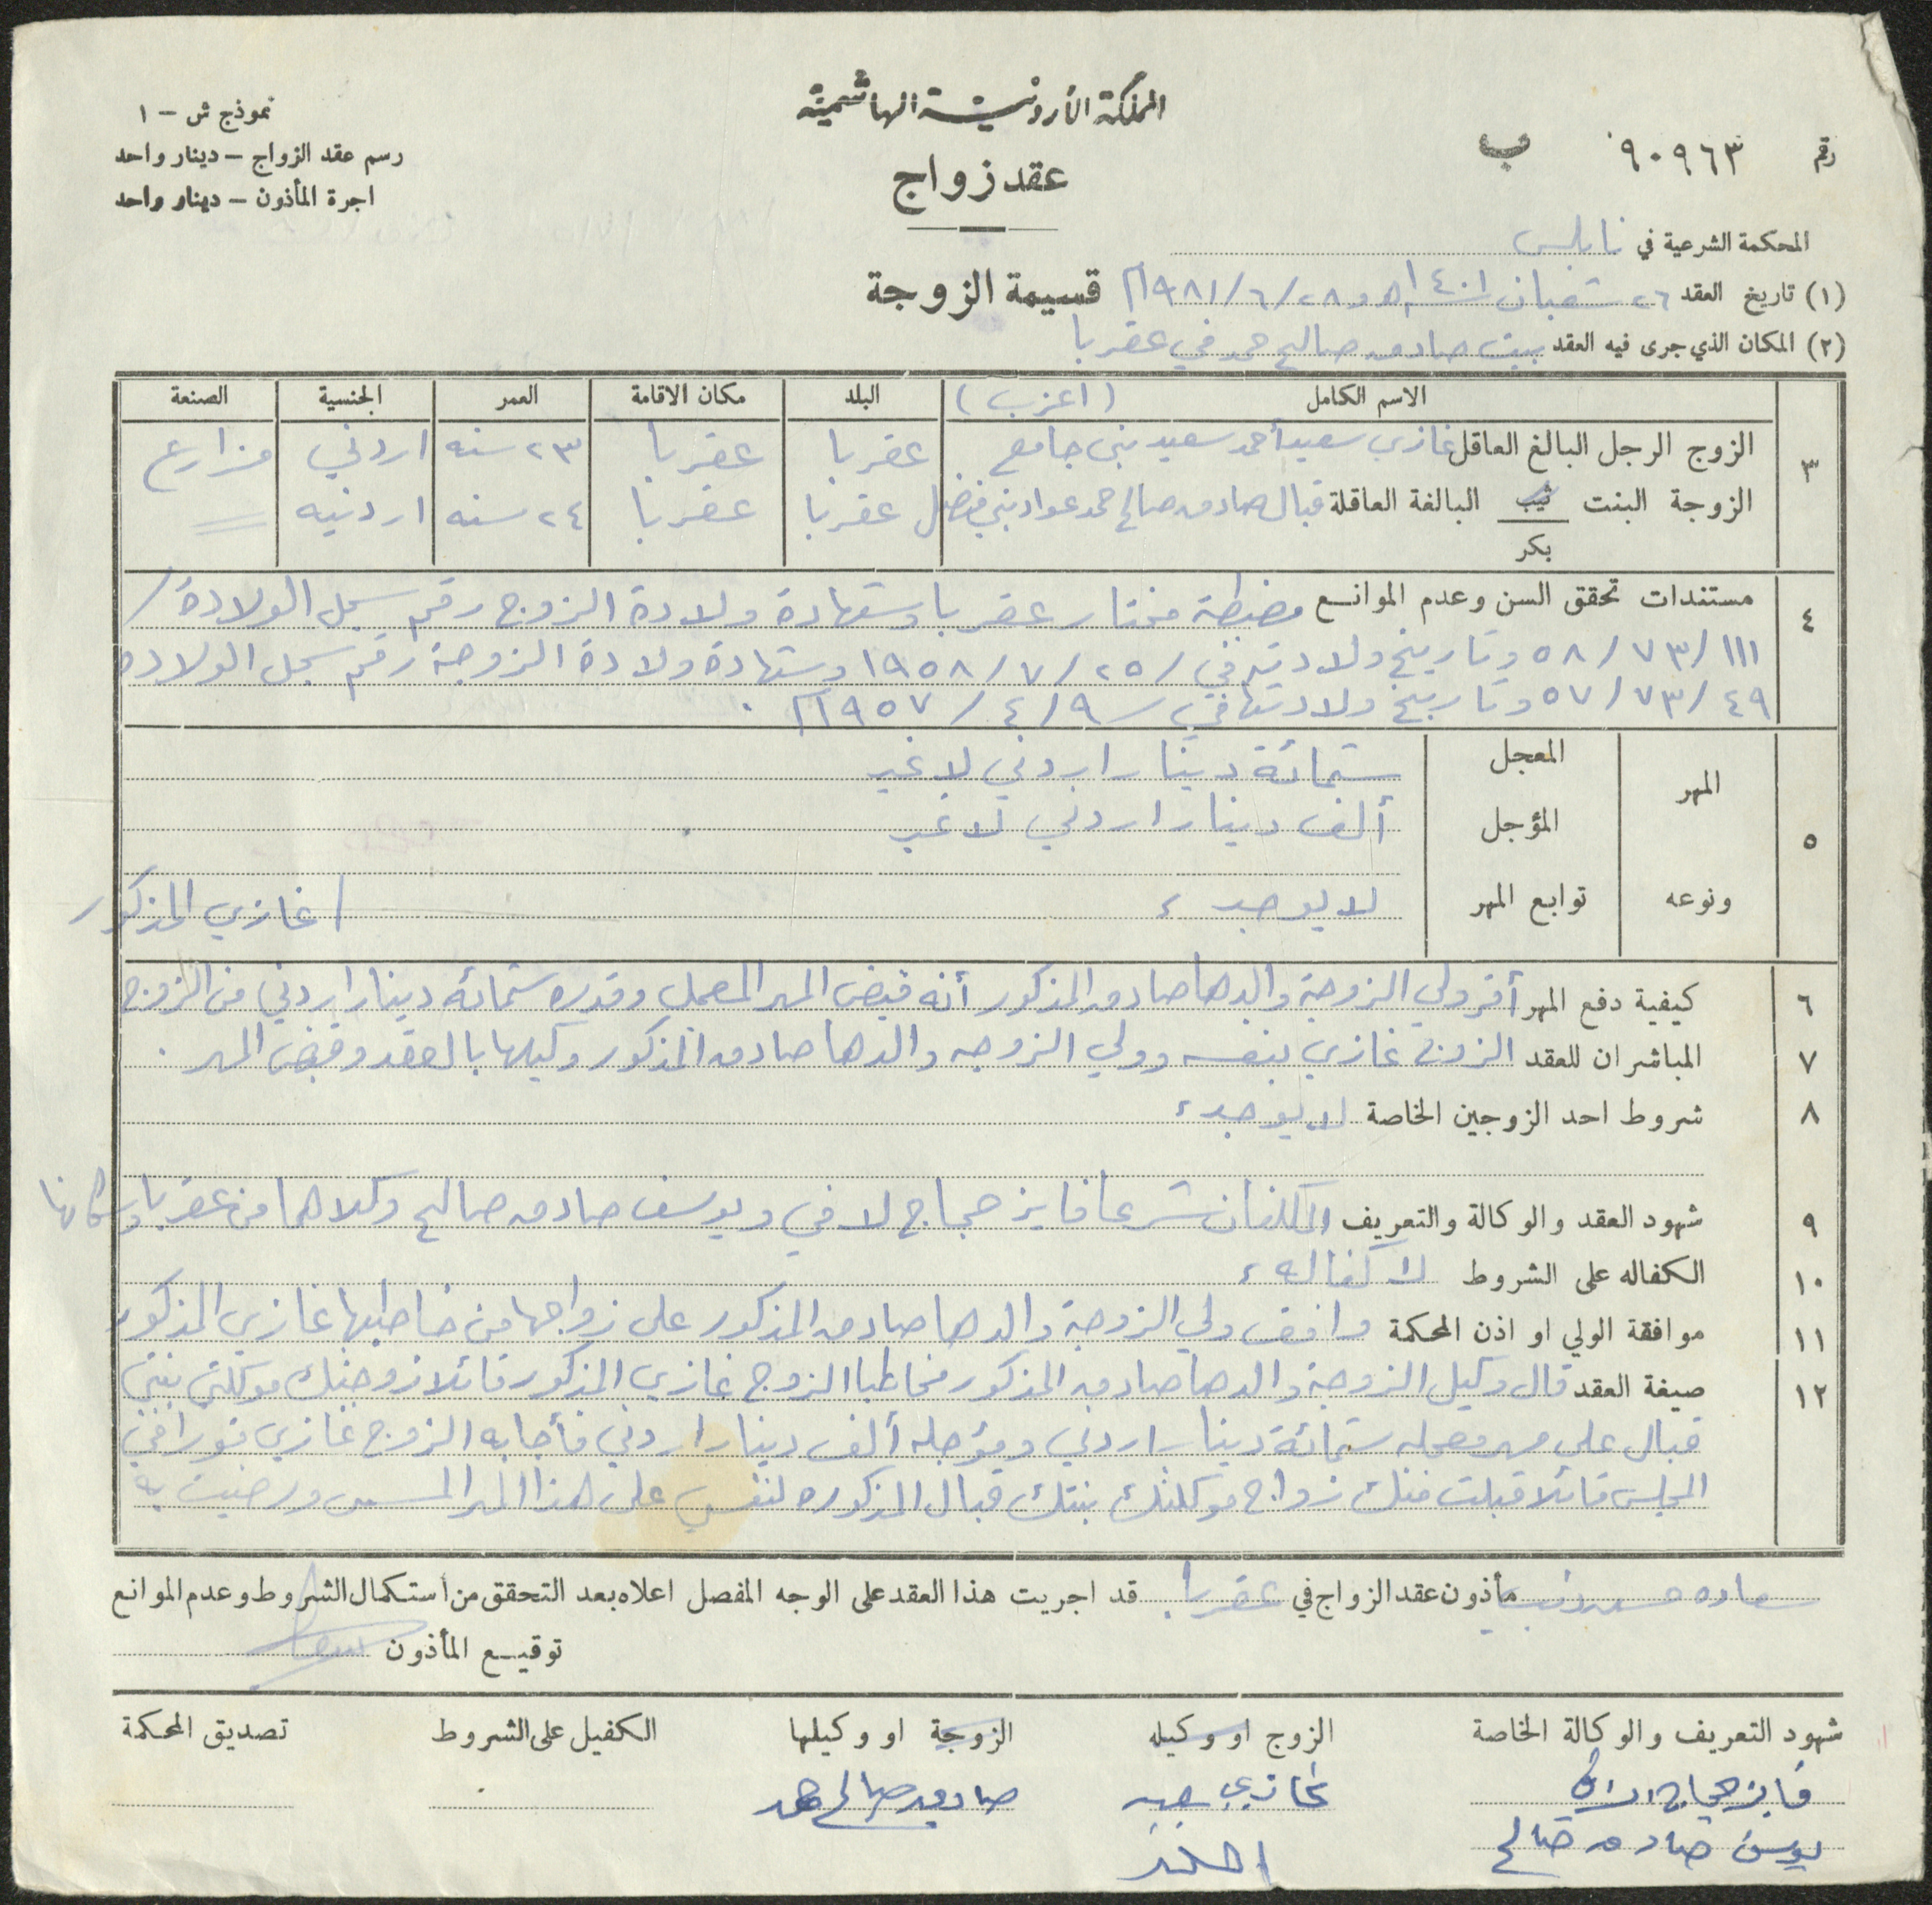 المملكة الأردنية الهاشمية
نموذج ش - ١
رقم ٩٠٩٦٣ ب
رسم عقد الزواج - دينار واحد
عقد زواج
اجرة المأذون - دينار واحد
المحكمة الشرعية في نابلس
(١) تاريخ العقد ٢٦ شعبان ١٤٠١هـ و ٢٨/٦/١٩٨١م قسيمة الزوجة
(٢) المكان الذي جرى فيه العقد بيت صادق صالح حمد في عقربا
٣ الاسم الكامل (اعزب) البلد مكان الاقامة العمر الجنسية الصنعة
الزوج الرجل البالغ العاقل غازي سعيد أحمد سعيد بني جامع عقربا عقربا ٢٣ سنه اردني مزارع
الزوجة البنت ثيب البالغة العاقلة قبال صادق صالح حمد عواد بني فضل عقربا عقربا ٢٤ سنه اردنيه =
بكر
٤ مستندات تحقق السن وعدم الموانع مضبطة مختار عقربا وشهادة ولادة الزوج رقم سجل الولادة /
١١١/٧٣/٥٨ وتاريخ ولادته في /٢٥/٧/١٩٥٨ وشهادة ولادة الزوجة رقم سجل الولاده
٤٩/٧٣/٥٧ وتاريخ ولادتها في ٩/٤/١٩٥٧م .
٥ المهر المعجل ستمائة دينار اردني لا غير
المؤجل ألف دينار اردني لا غير
ونوعه توابع المهر لا يوجد ،
/ غازي المذكور
٦ كيفية دفع المهر أقر ولي الزوجة والدها صادق المذكور أنه قبض المهر المعجل وقدره ستمائه دينار اردني من الزوج
٧ المباشران للعقد الزوج غازي بنفسه وولي الزوجه والدها صادق المذكور وكيلها بالعقد وقبض المهر .
٨ شروط احد الزوجين الخاصة لا يوجد ،
٩ شهود العقد والوكالة والتعريف المكلفان شرعا فايز حجاج لافي ويوسف صادق صالح وكلاهما من عقربا وسكانها
١٠ الكفاله على الشروط لا كفاله ،
١١ موافقة الولي او اذن المحكمة وافق ولي الزوجة والدها صادق المذكور على زواجها من خاطبها غازي المذكور
١٢ صيغة العقد قال وكيل الزوجة والدها صادق المذكور مخاطبا الزوج غازي المذكور قائلا زوجتك موكلتي بنتي
قبال على مهر معجله ستمائة دينار اردني ومؤجله ألف دينار اردني فأجابه الزوج غازي فورا في
المجلس قائلا قبلت منك زواج موكلتك بنتك قبال المذكوره لنفسي على هذا المهر المسمى ورضيت به
سعاده مأذون عقد الزواج في عقربا . قد اجريت هذا العقد على الوجه المفصل اعلاه بعد التحقق من استكمال الشروط وعدم الموانع
توقيع المأذون
شهود التعريف والوكالة الخاصة الزوج او وكيله الزوجة او وكيلها الكفيل على الشروط تصديق المحكمة
فايز حجاج لافي غازي سعيد صادق صالح حمد
يوسف صادق صالح احمد